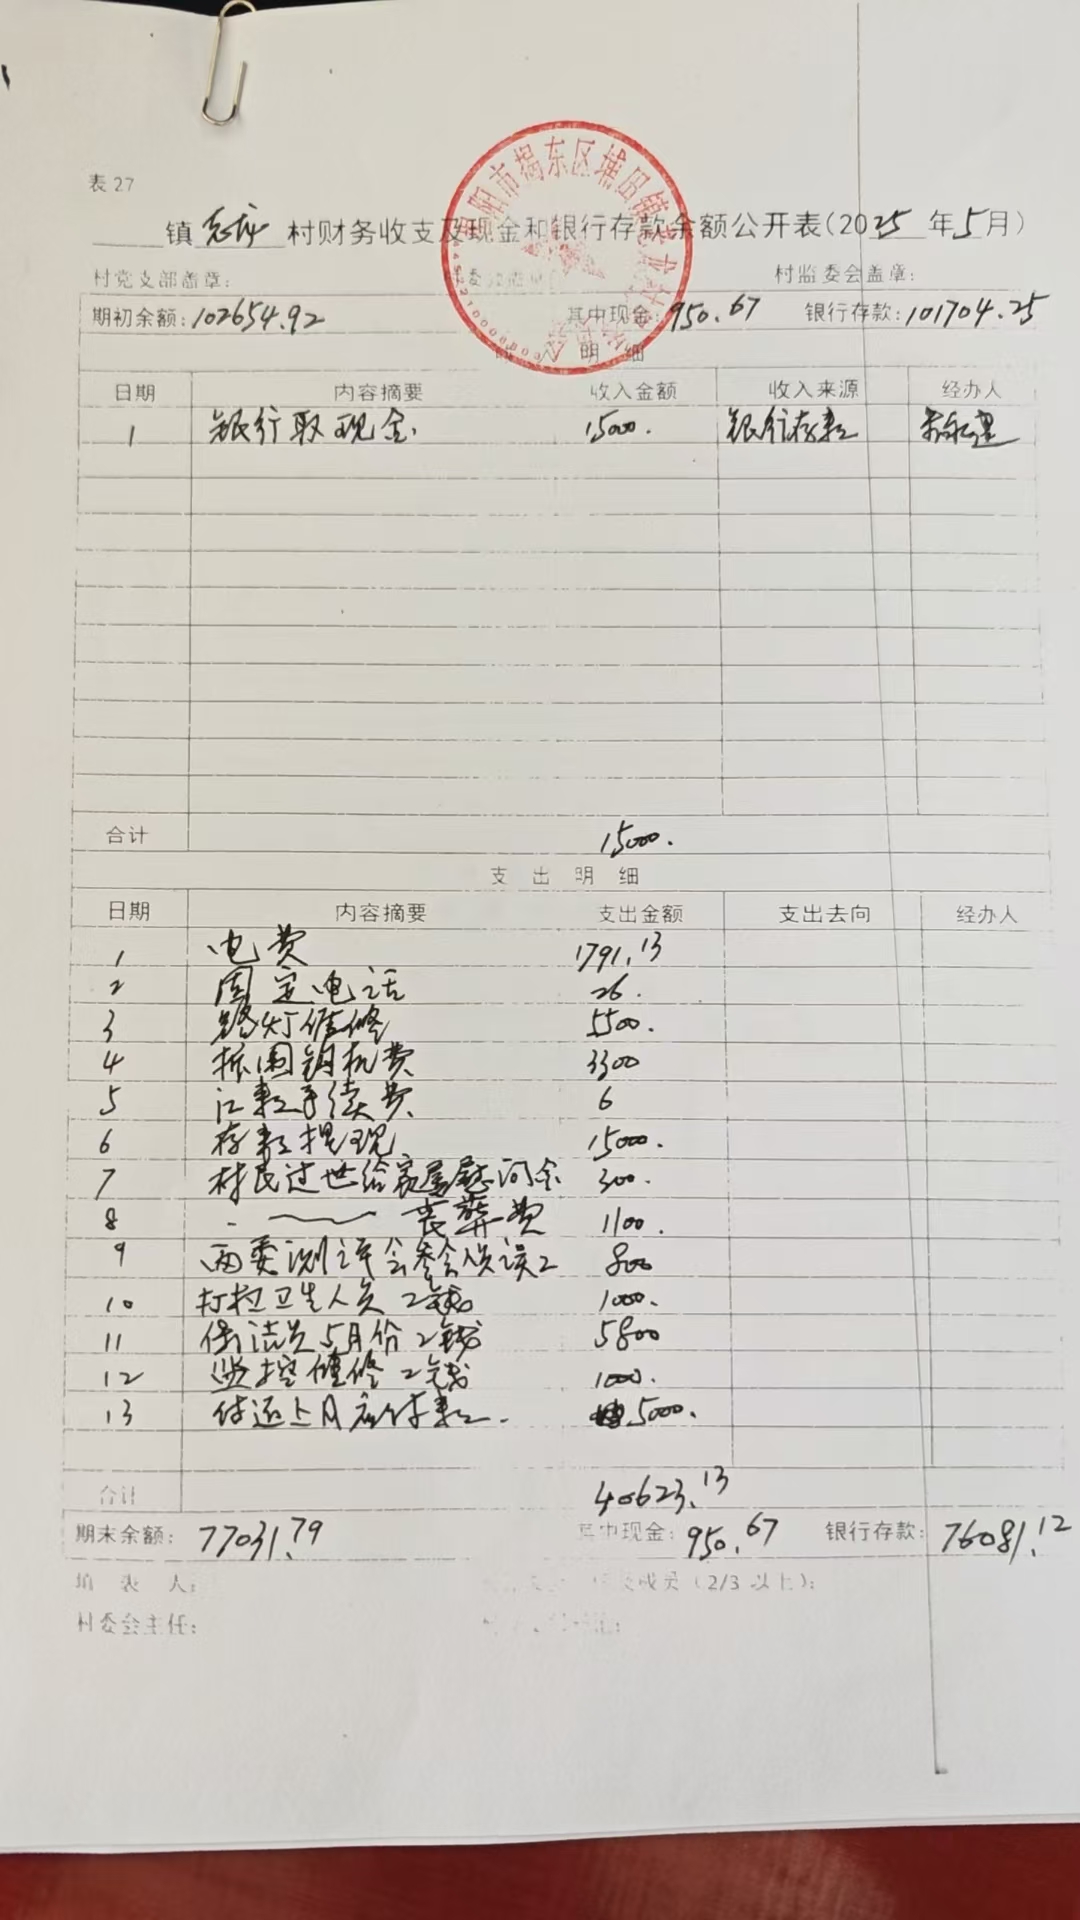 表27
镇 村财务收支及现金和银行存款余额公开表(2025年5月)
村党支部盖章: 村监委会盖章:
期初余额:102654.92 其中现金:950.67 银行存款:101704.25
入明细
日期 内容摘要 收入金额 收入来源 经办人
1 银行取现金. 15000. 银行存款
合计 15000.
支出明细
日期 内容摘要 支出金额 支出去向 经办人
1 电费 1791.13
2 固定电话 26.
3 路灯维修 5500.
4 机费 3300
5 汇款手续费 6
6 存款提现 15000.
7 村民过世给家属慰问金 300.
8 丧葬费 1100.
9 两委测评会参会人员误工 800
10 卫生人员工钱 1000.
11 保洁员5月份工钱 5800
12 监控维修工钱 1000.
13 付还上月应付款. 5000.
合计 40623.13
期末余额: 77031.79 其中现金: 950.67 银行存款: 76081.12
填表人: 成员(2/3以上):
村委会主任: